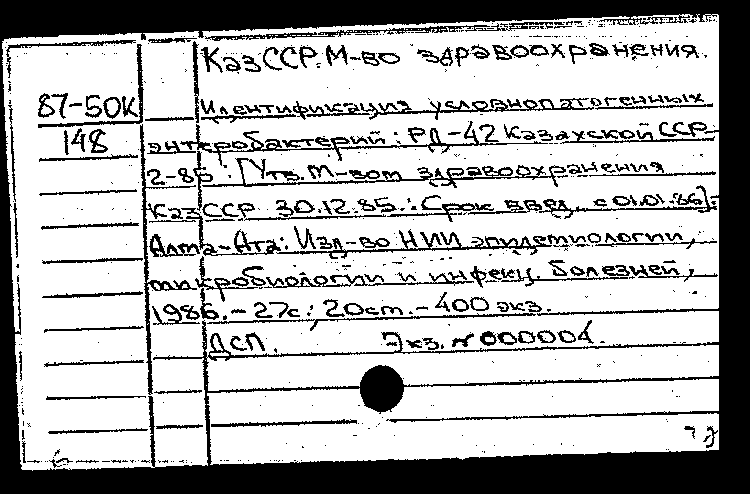 КазССР. М-во здравоохранения.
87-50К
148
Идентификация условнопатогенных
энтеробактерий: РД-42 Казахской ССР
2-85: [Утв. М-вом здравоохранения
КазССР 30.12.85.: Срок введ. с 01.01.86].-
Алма-Ата: Изд-во НИИ эпидемиологии,
микробиологии и инфекц. болезней,
1986.- 27с.; 20см.- 400 экз.
ДСП. Экз. № 000004.
6